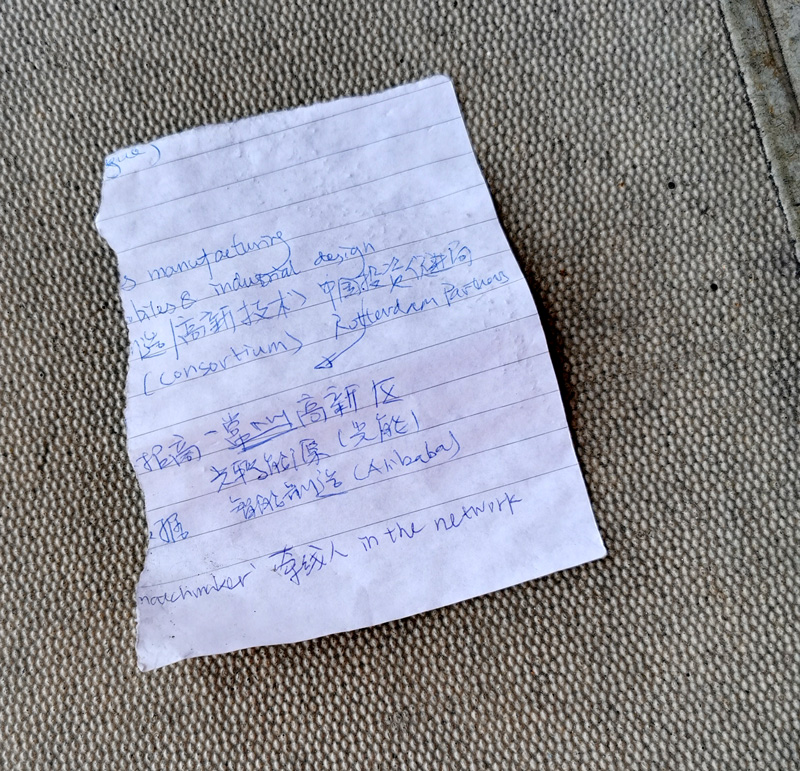 s manufacturing
biles & industrial design
造/高新技术> 中国投资促进局
(consortium) Rotterdam Partners
招商-常州高新区
能源(光能)
智能制造 (Alibaba)
据
matchmaker 牵线人 in the network